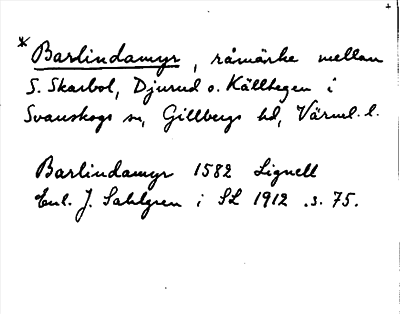 * Barlindamyr, råmärke mellan
S. Skarbol, Djurud o. Källhegen i
Svanskogs sn, Gillbergs hd, Värml. l.
Barlindamyr 1582 Lignell
Enl. J. Sahlgren i SL 1912 .s. 75.